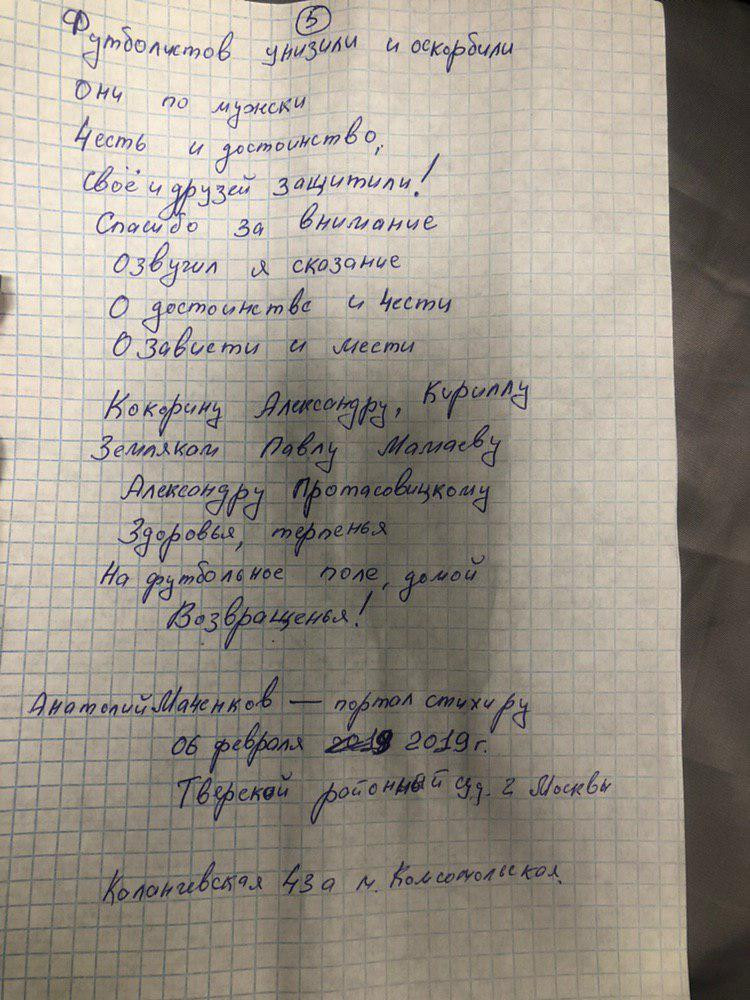 5
Футболистов унизили и оскорбили
Они по мужски
Честь и достоинство,
Своё и друзей защитили!
Спасибо за внимание
Озвучил я сказание
О достоинстве и чести
О зависти и мести
Кокорину Александру, Кириллу
Землякам Павлу Мамаеву
Александру Протасовицкому
Здоровья, терпенья
На футбольное поле, домой
Возвращенья!
Анатолий — портал стихи ру
06 февраля 2019 г.
Тверской районный суд. г Москвы
Каланчевская 43а м. Комсомольская.